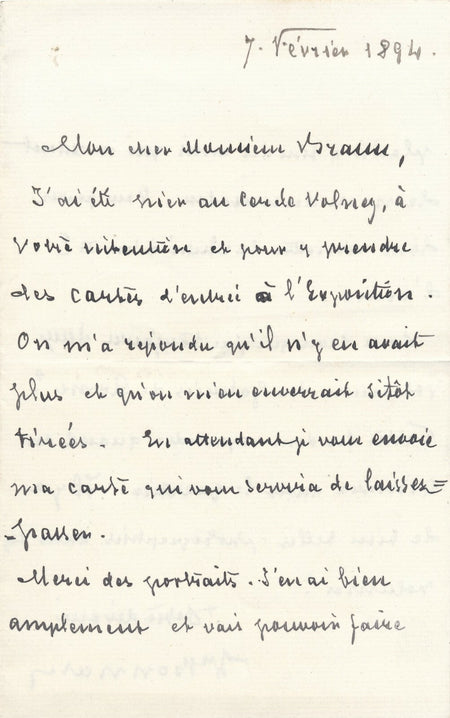 7. Février 1894.
Mon cher Monsieur Braun,
J'ai été hier au Cercle Volney, à
votre intention et pour y prendre
des cartes d'entrée à l'Exposition.
On m'a répondu qu'il n'y en avait
plus et qu'on m'en enverrait sitôt
tirées. En attendant je vous envoie
ma carte qui vous servira de laissez=
-passer.
Merci des portraits. J'en ai bien
amplement et vais pouvoir faire